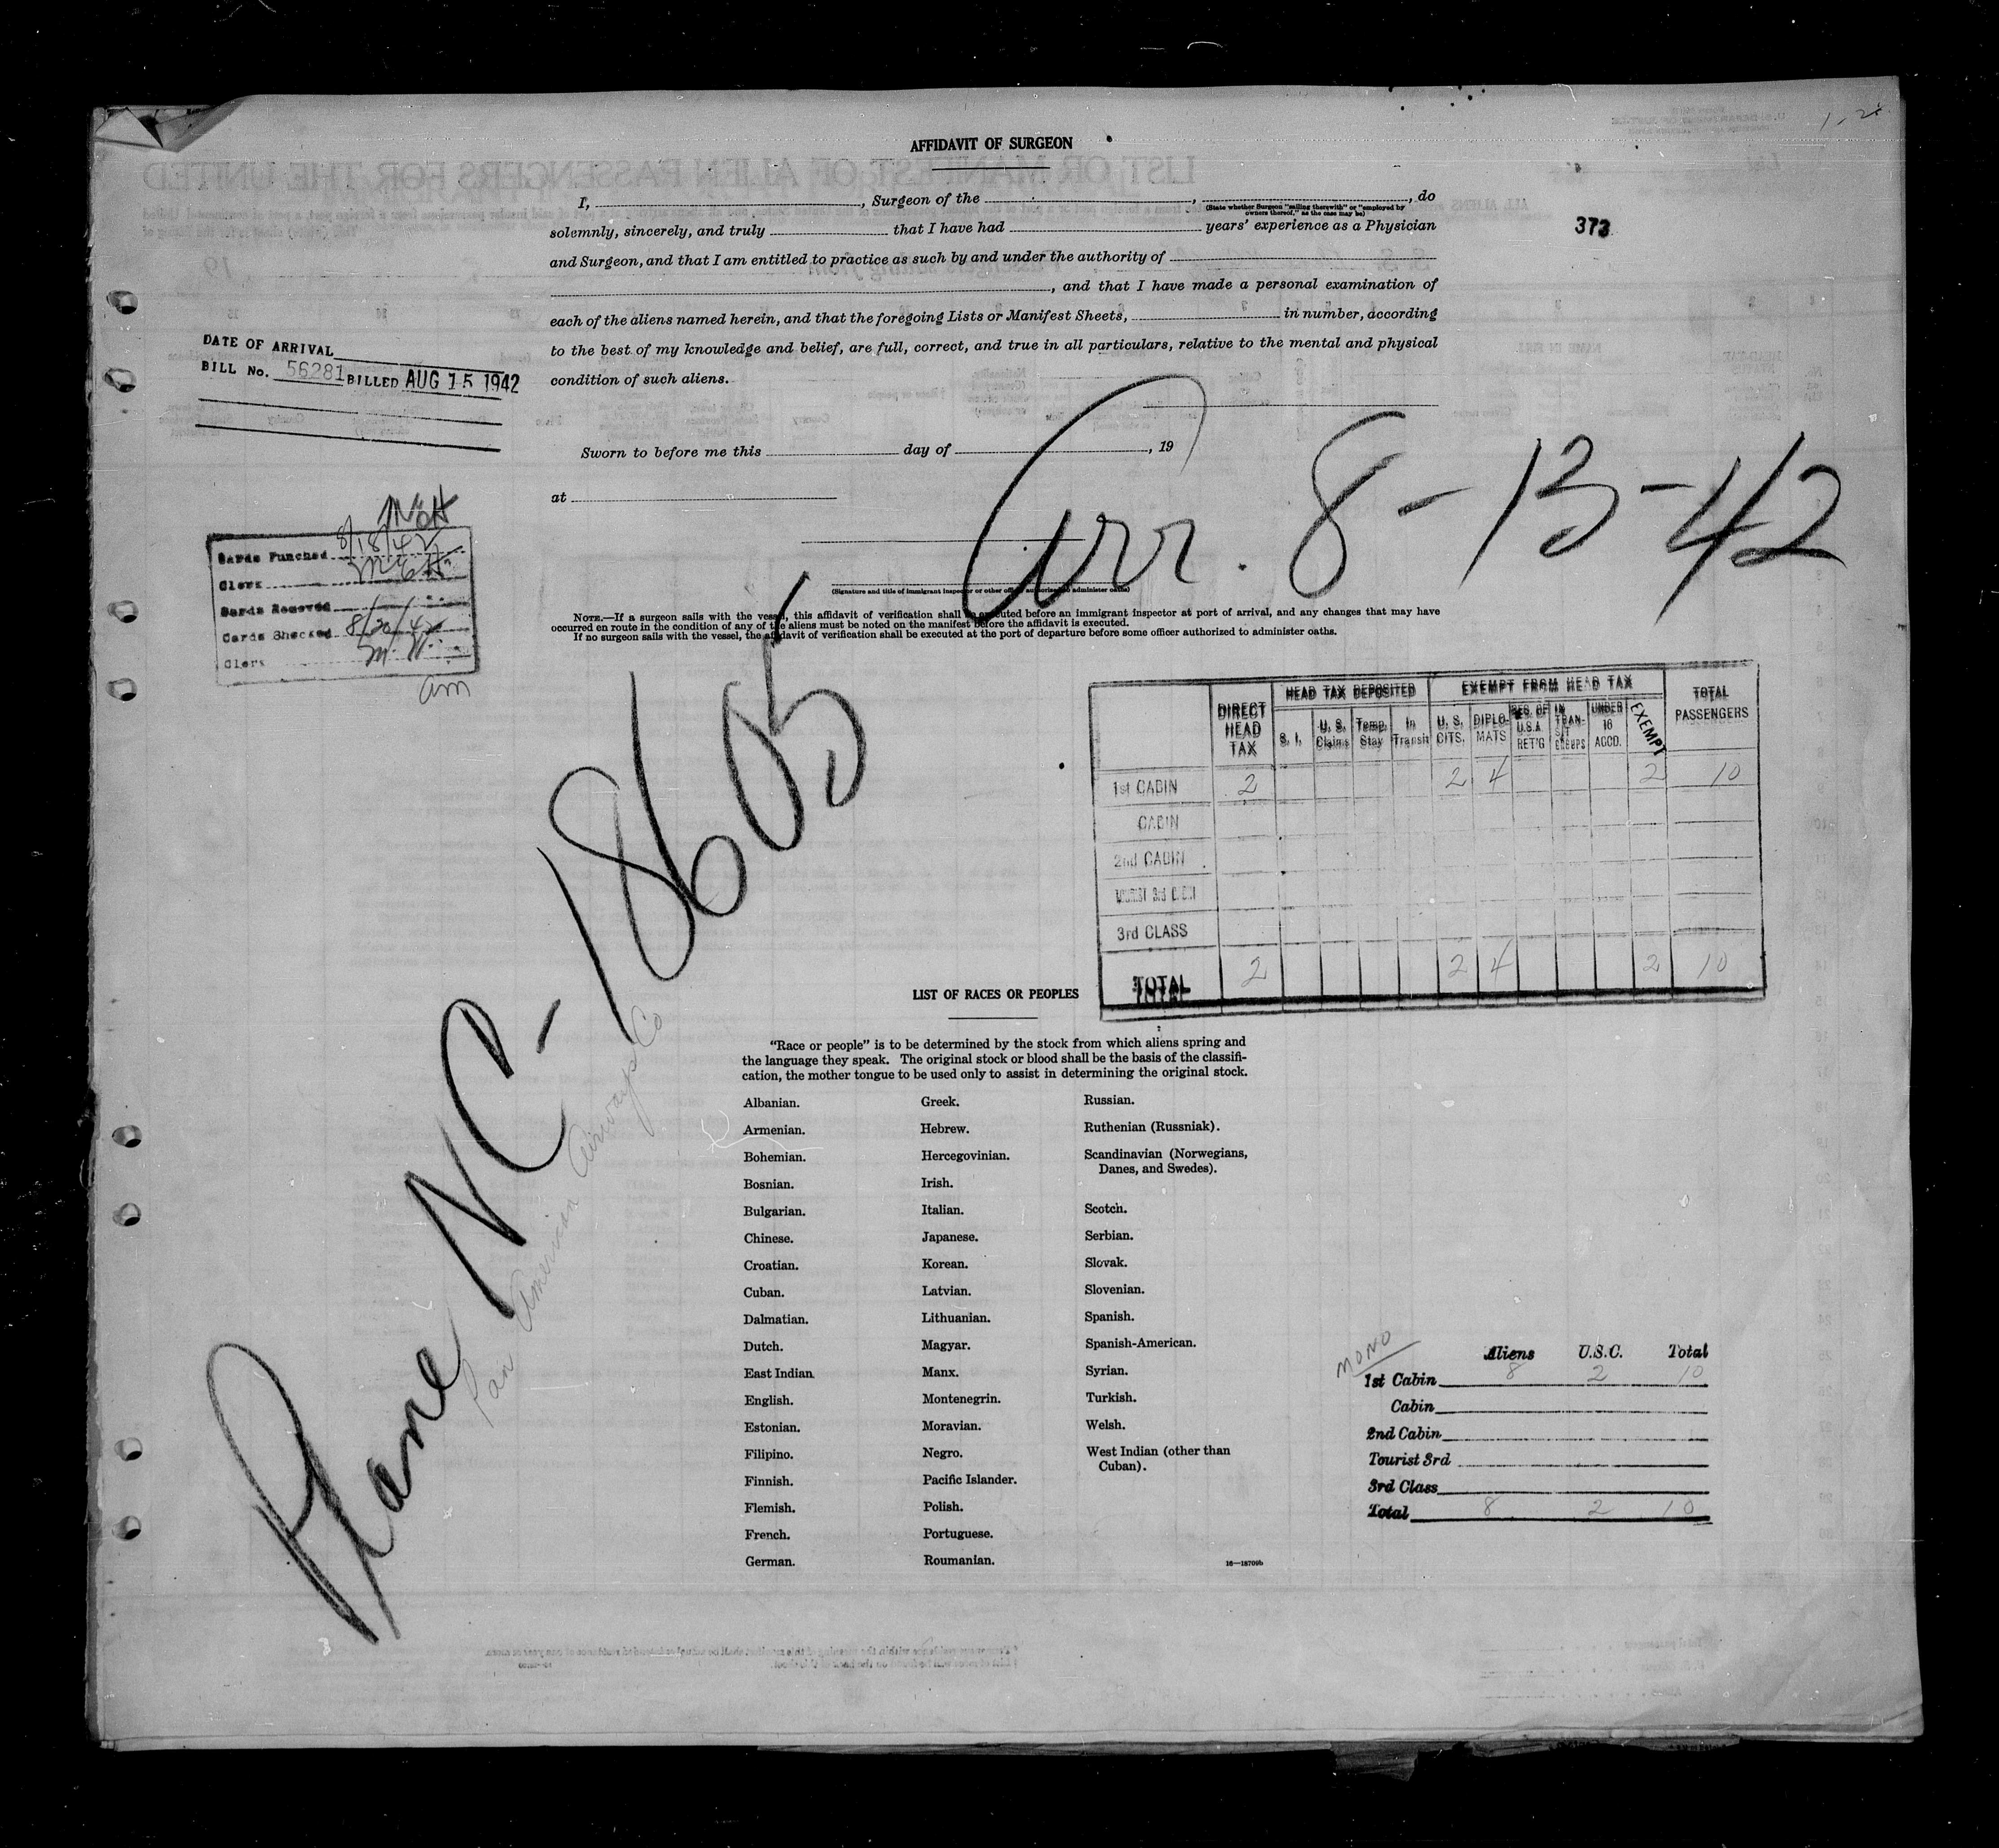 AFFIDAVIT OF SURGEON
I, , Surgeon of the , , do
(State whether Surgeon "sailing therewith" or "employed by
owners thereof," as the case may be)
solemnly, sincerely, and truly that I have had years' experience as a Physician
and Surgeon, and that I am entitled to practice as such by and under the authority of
, and that I have made a personal examination of
each of the aliens named herein, and that the foregoing Lists or Manifest Sheets, in number, according
to the best of my knowledge and belief, are full, correct, and true in all particulars, relative to the mental and physical
condition of such aliens.
373
DATE OF ARRIVAL
BILL No. 56281 BILLED AUG 15 1942
Sworn to before me this day of , 19
at
Arr. 8-13-42
(Signature and title of immigrant inspector or other officer authorized to administer oaths)
Cards Punched 8/18/42
Clerk
Cards Removed
Cards Checked 8/20/42
Clerk M. H.
am
NOTE.—If a surgeon sails with the vessel, this affidavit of verification shall be executed before an immigrant inspector at port of arrival, and any changes that may have
occurred en route in the condition of any of the aliens must be noted on the manifest before the affidavit is executed.
If no surgeon sails with the vessel, the affidavit of verification shall be executed at the port of departure before some officer authorized to administer oaths.
DIRECT HEAD TAX HEAD TAX DEPOSITED EXEMPT FROM HEAD TAX TOTAL PASSENGERS
S. I. U. S. Claims Temp. Stay In Transit U. S. CITS. DIPLO-MATS RES. OF U.S.A. RET'G IN TRAN-SIT UNDER 16 ACCD. EXEMPT
1st CABIN 2 2 4 2 10
CABIN
2nd CABIN
TOURIST 3rd
3rd CLASS
TOTAL 2 2 4 2 10
Plane NC-18605
Pan American Airways Co
LIST OF RACES OR PEOPLES
"Race or people" is to be determined by the stock from which aliens spring and
the language they speak. The original stock or blood shall be the basis of the classifi-
cation, the mother tongue to be used only to assist in determining the original stock.
Albanian. Greek. Russian.
Armenian. Hebrew. Ruthenian (Russniak).
Bohemian. Hercegovinian. Scandinavian (Norwegians,
Danes, and Swedes).
Bosnian. Irish.
Bulgarian. Italian. Scotch.
Chinese. Japanese. Serbian.
Croatian. Korean. Slovak.
Cuban. Latvian. Slovenian.
Dalmatian. Lithuanian. Spanish.
Dutch. Magyar. Spanish-American.
East Indian Manx. Syrian.
English. Montenegrin. Turkish.
Estonian. Moravian. Welsh.
Filipino. Negro. West Indian (other than
Cuban).
Finnish. Pacific Islander.
Flemish. Polish.
French. Portuguese.
German. Roumanian.
16—18709b
MONO
Aliens U.S.C. Total
1st Cabin 8 2 10
Cabin
2nd Cabin
Tourist 3rd
3rd Class
Total 8 2 10